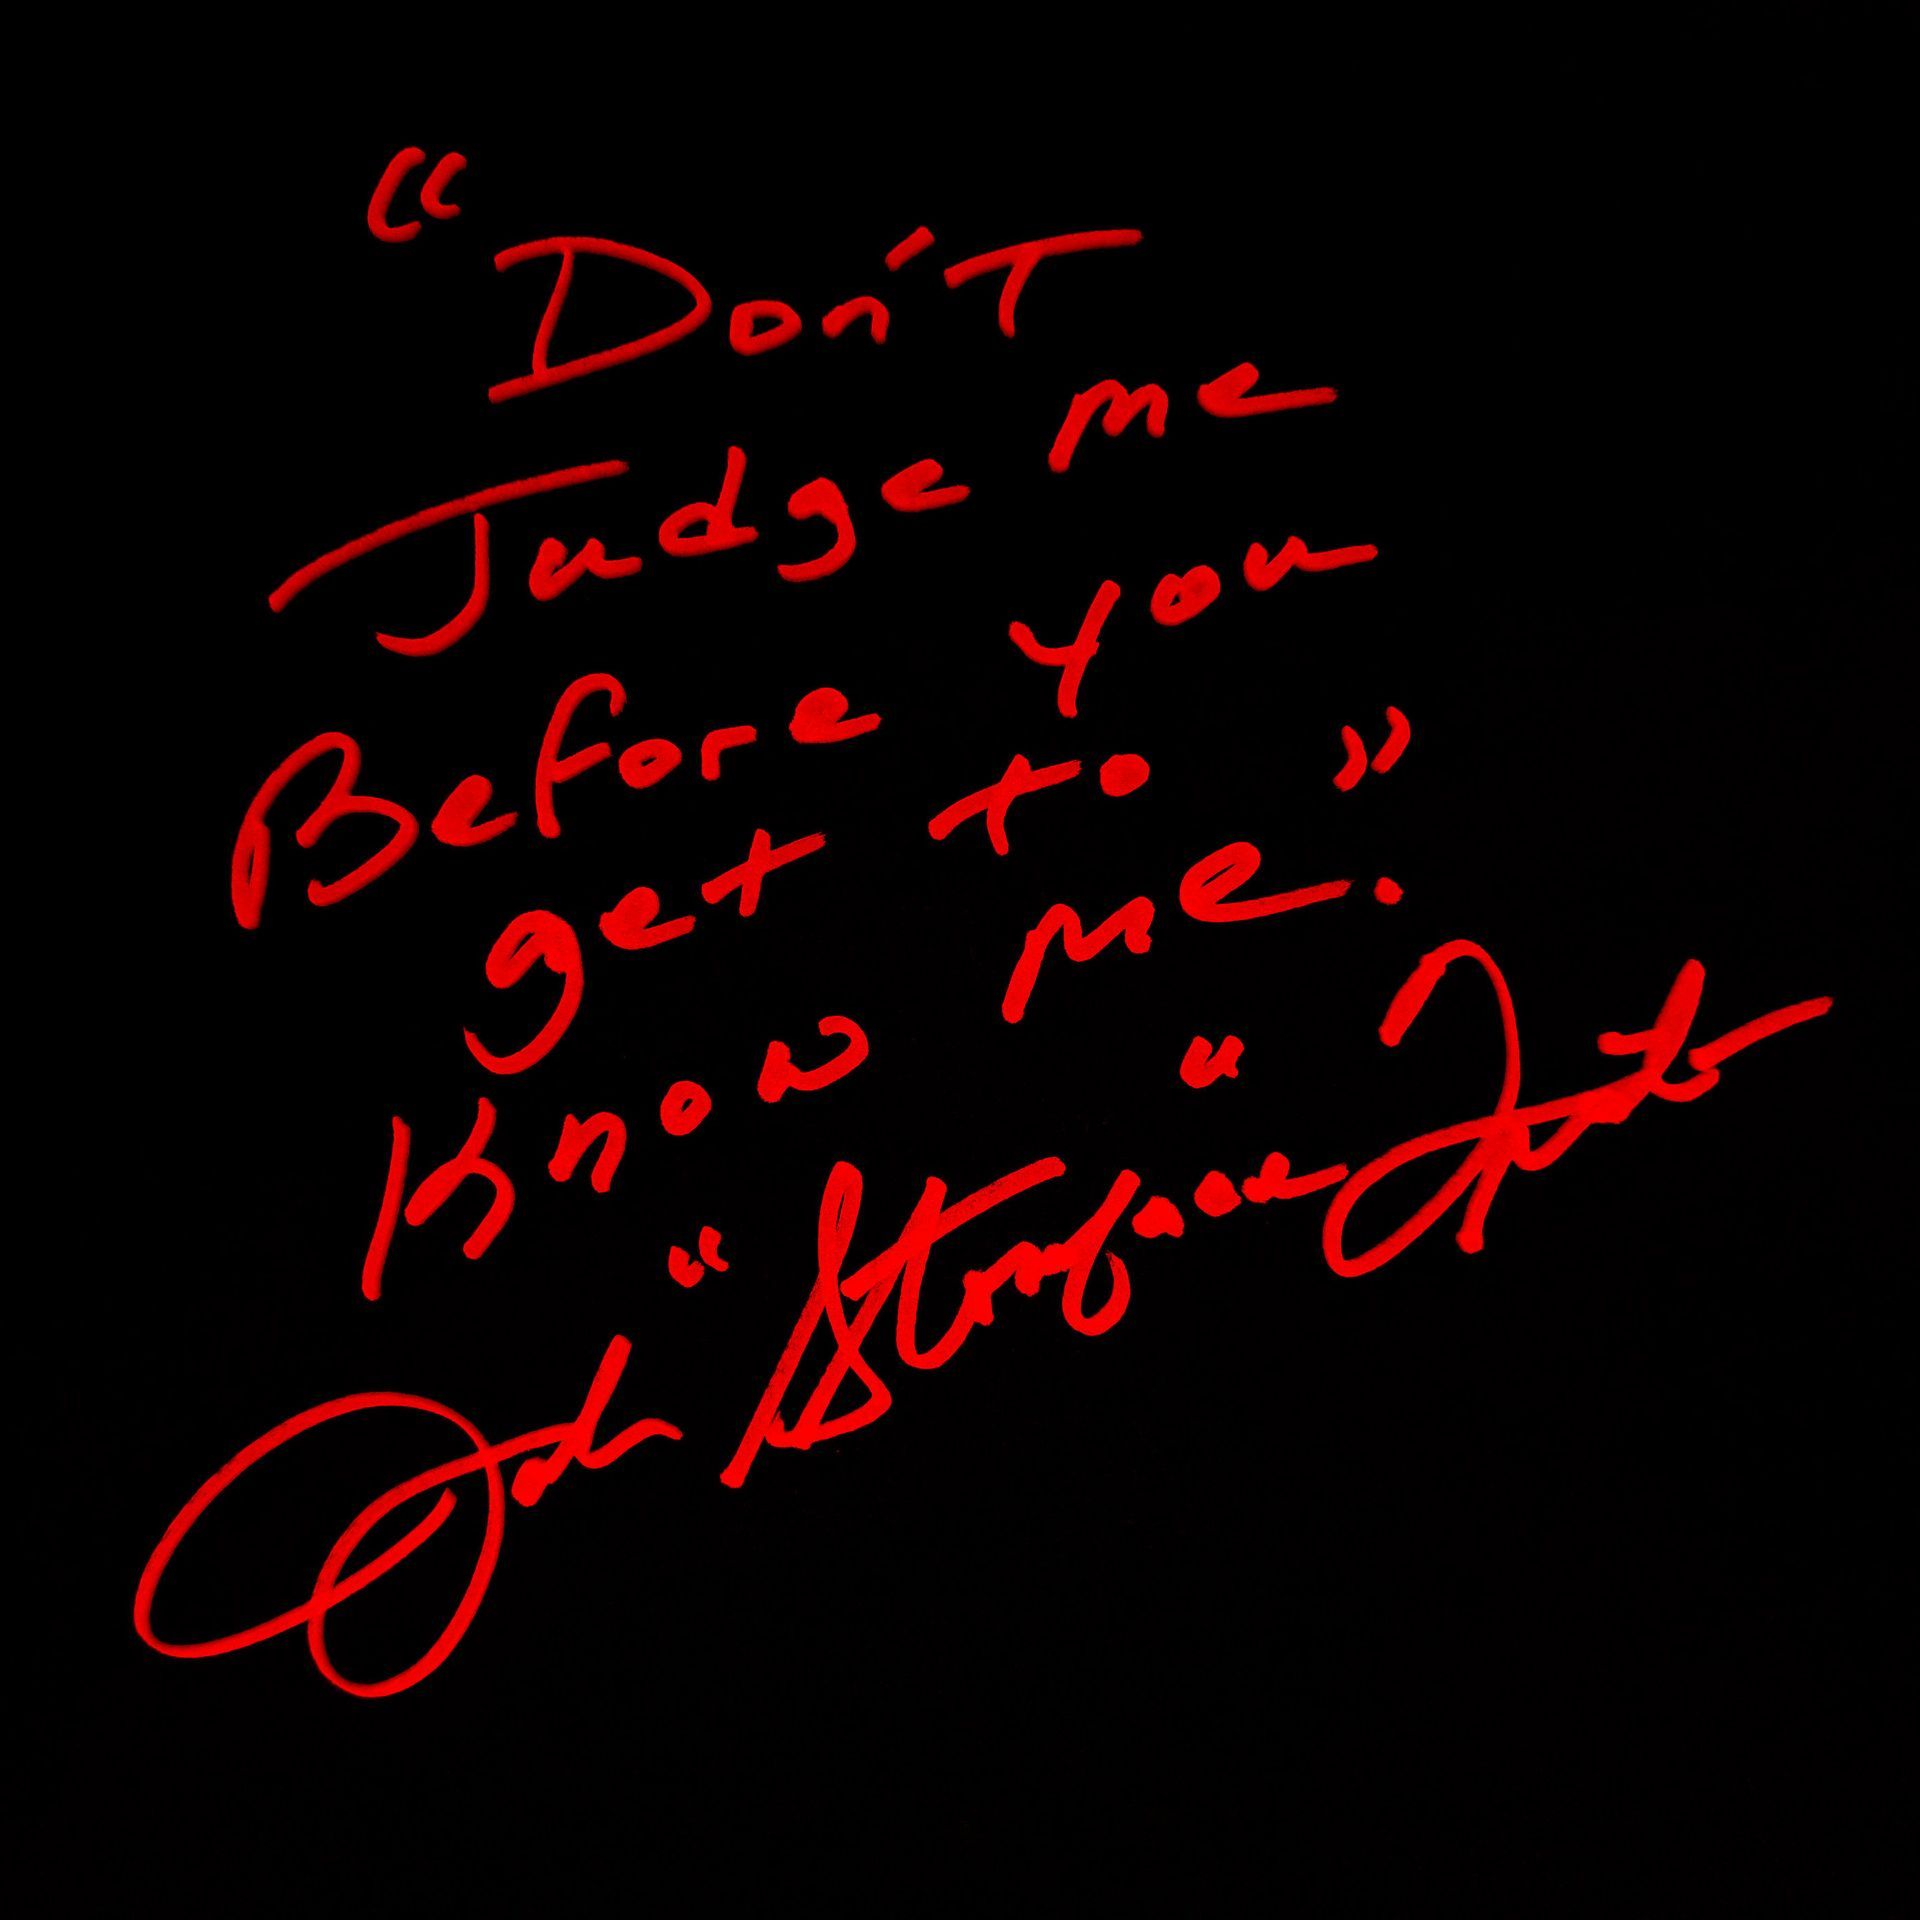 "Don't
Judge me
Before you
get to
Know me."
Jack "Stonface"